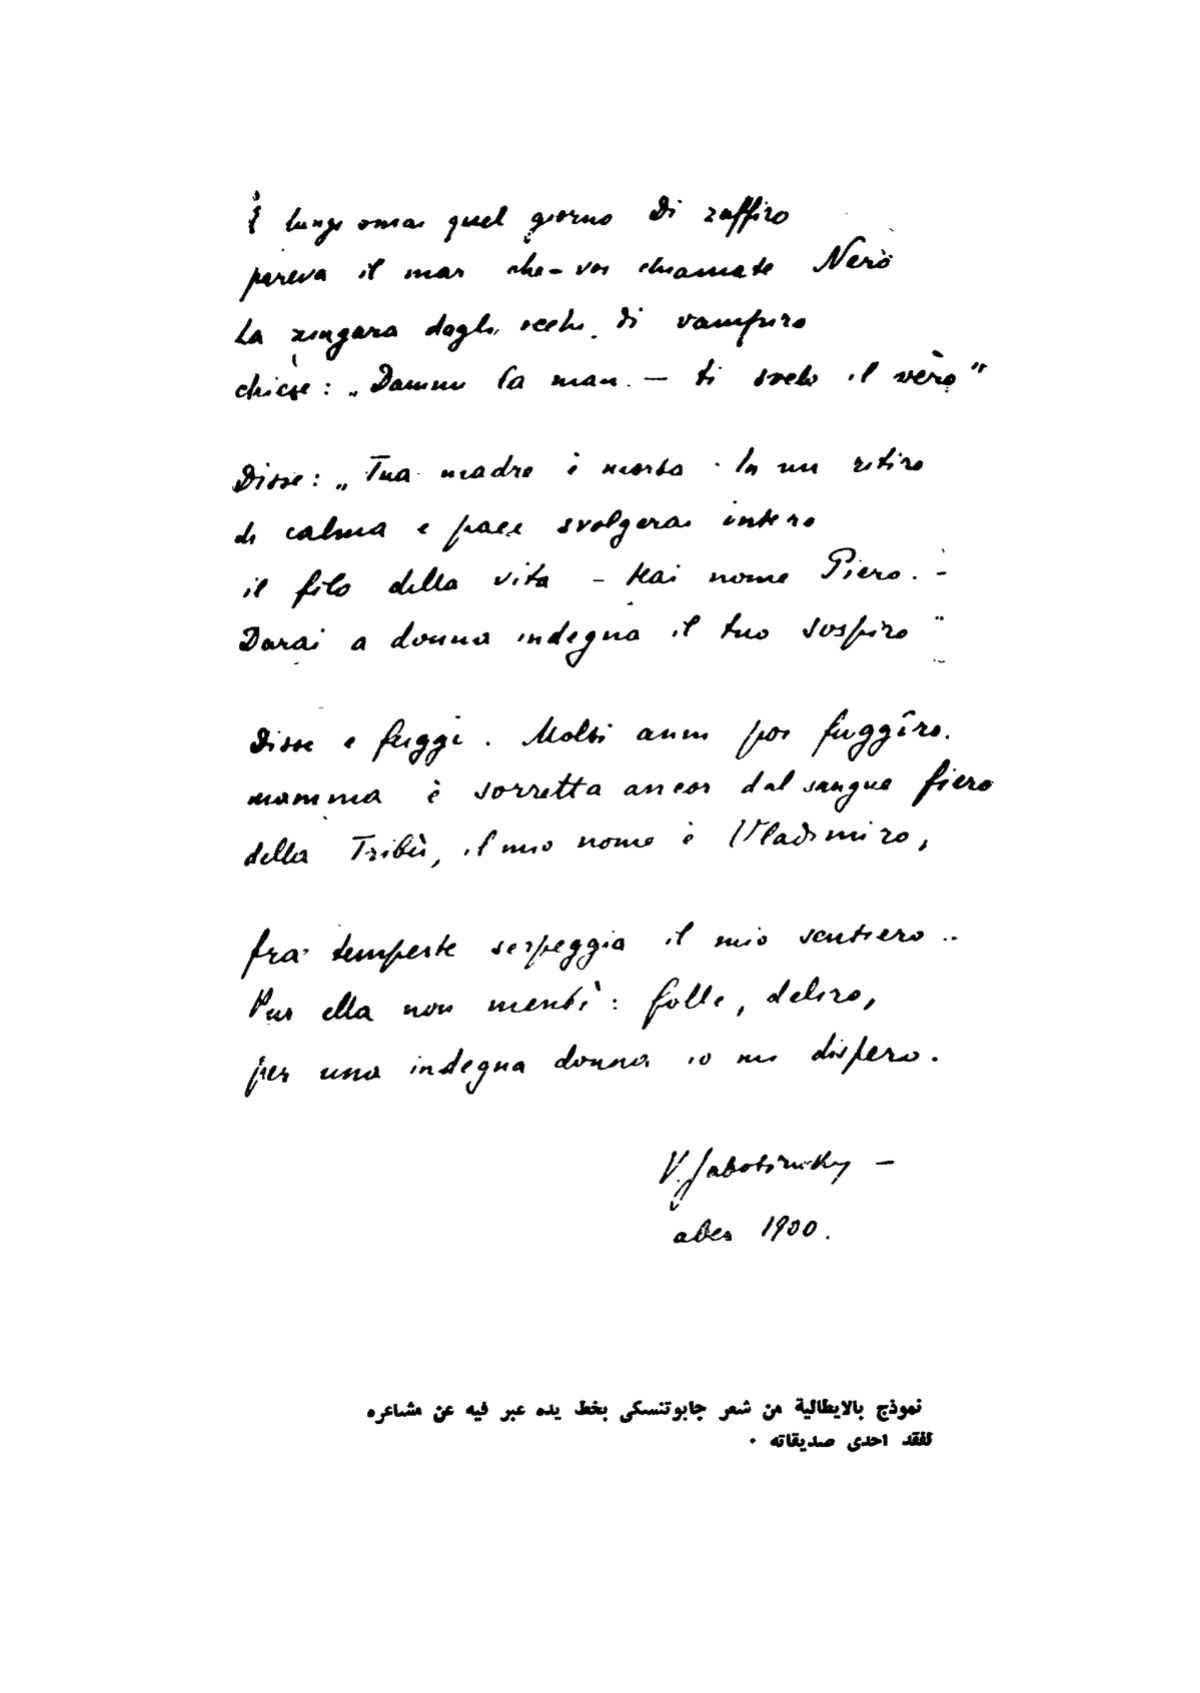 È lungi omai quel giorno di zaffiro
pareva il mar che - voi chiamate Nero
La zingara dagli occhi di vampiro
chiese: „Dammi la man. — ti svelo il vero"
Disse: „Tua madre è morta. In un retiro
di calma e pace svolgerai intero
il filo della vita - Hai nome Piero. -
Darai a donna indegna il tuo sospiro"
Disse e fuggì. Molti anni poi fuggîro.
mamma è sorretta ancor dal sangue fiero
della Tribù, il mio nome è Vladimiro,
fra tempeste serpeggia il mio sentiero..
Pur ella non mentì: folle, deliro,
per una indegna donna io mi dispero.
V. Jabotinsky —
1900.
نموذج بالايطالية من شعر جابوتنسكى بخط يده عبر فيه عن مشاعره
لفقد احدى صديقاته .